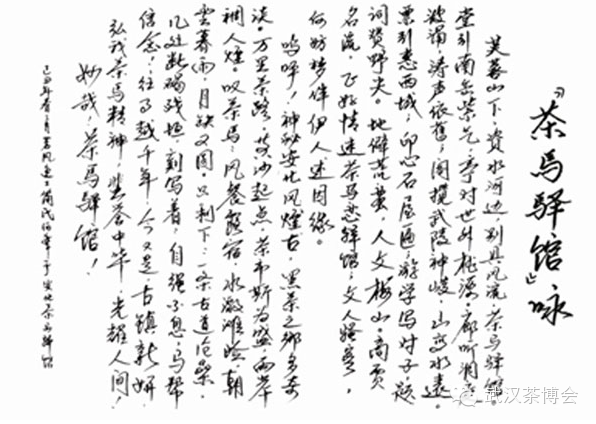 『茶马驿馆』咏
芙蓉山下，资水河边，别具风流，茶马驿馆。
堂引南岳紫气，亭对世外桃源，廊听洞庭
波涌，涛声依旧，阁揽武陵神峻，山高水远。
票引西城，印心石屋匾，游学写对子，题
词贤野夫。地僻荒蛮，人文梅山。商贾
名流，正好情迷茶马驿馆，文人骚客，
何妨梦伴伊人述因缘。
呜呼！神秘安化风煌古，黑茶之乡多奇
谈。万里茶路，沙起点，茶市斯为盛，两岸
稠人煌。叹茶马，风餐露宿，水激滩险，朝
云暮雨，月缺又圆。只剩下，一条古道沧桑，
几处断碣残垣，刻写着，自强不息，马帮
信念！往事越千年，今又是古镇新妍
弘我茶马精神，誉中华，光耀人间！
妙哉！茶马驿馆！
己丑年春月 安化茶马驿馆
武汉茶博会